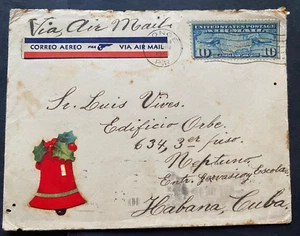 Via Air Mail
CORREO AEREO VIA AIR MAIL
UNITED STATES POSTAGE
10 10
Sr. Luis Vives.
Edificio Orbe.
634, 3er piso.
Neptuno
Entr. Gervasio y Escobar
Habana, Cuba.